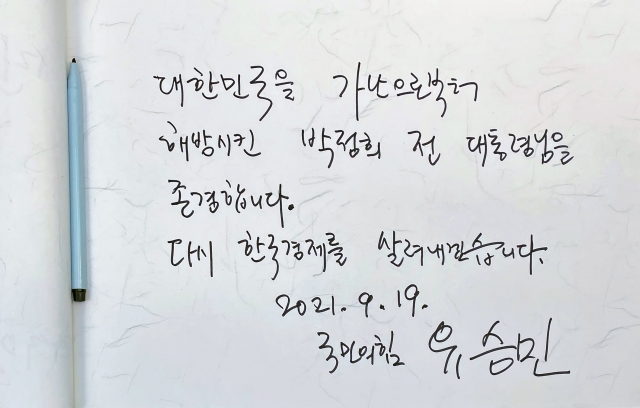 대한민국을 가난으로부터
해방시킨 박정희 전 대통령님을
존경합니다.
다시 한국경제를 살려내겠습니다.
2021. 9. 19.
국민의힘 유승민